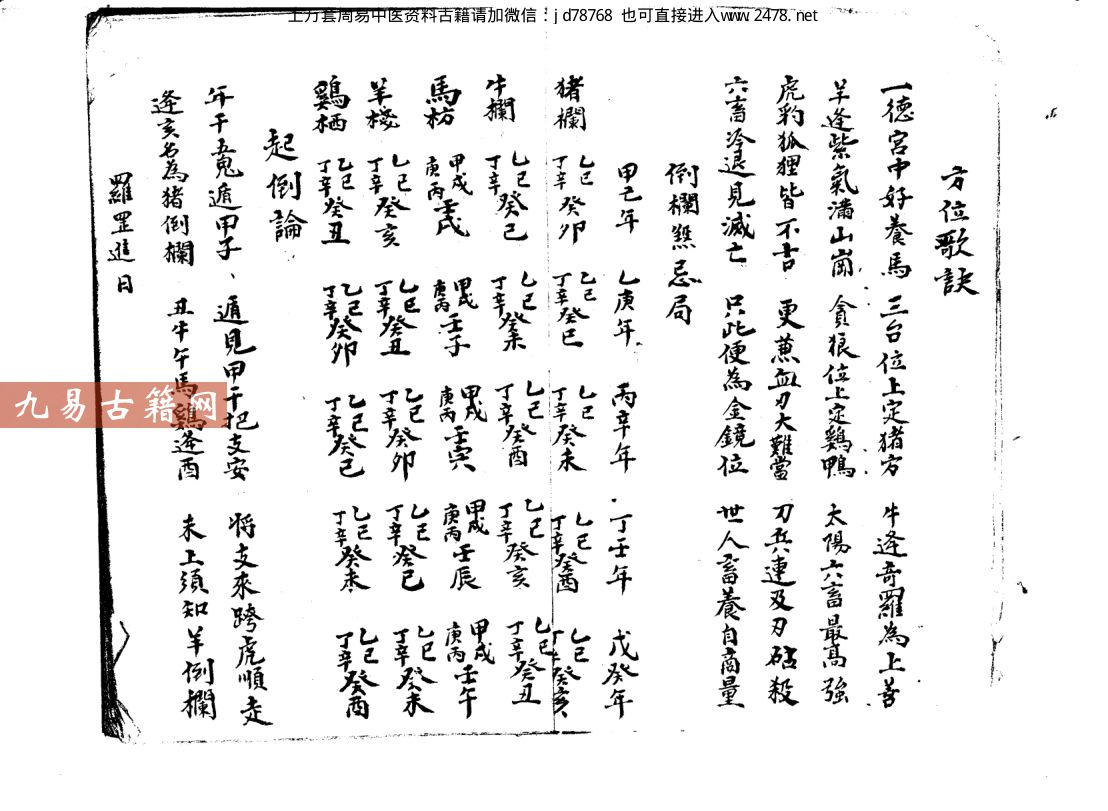 上万套周易中医资料古籍请加微信：jd78768 也可直接进入www.2478.net
方位歌訣
一德宮中好養馬 三台位上定猪方 牛逢奇羅為上善
羊逢紫氣滿山崗 貪狼位上定鷄鴨 太陽六畜最高強
虎豹狐狸皆不吉 更蕙血刃大難當 刀兵連及刃砧殺
六畜冷退見滅亡 只此便為金鏡位 世人畜養自商量
倒欄 忌局
甲己年 乙庚年 丙辛年 丁壬年 戊癸年
猪欄 乙己丁辛癸卯 乙己丁辛癸巳 乙己丁辛癸未 乙己丁辛癸酉 乙己丁辛癸亥
牛欄 乙己丁辛癸巳 乙己丁辛癸未 乙己丁辛癸酉 乙己丁辛癸亥 乙己丁辛癸丑
馬枋 甲戊庚丙壬戌 甲戊庚丙壬子 甲戊庚丙壬寅 甲戊庚丙壬辰 甲戊庚丙壬午
羊棧 乙己丁辛癸亥 乙己丁辛癸丑 乙己丁辛癸卯 乙己丁辛癸巳 乙己丁辛癸未
鷄栖 乙己丁辛癸丑 乙己丁辛癸卯 乙己丁辛癸巳 乙己丁辛癸未 乙己丁辛癸酉
起倒論
年干五鬼遁甲子、遁見甲干把支安 將支來跨虎順走
逢亥名為猪倒欄 丑牛午馬鷄逢酉 未上須知羊倒欄
羅罡進日
九易古籍网